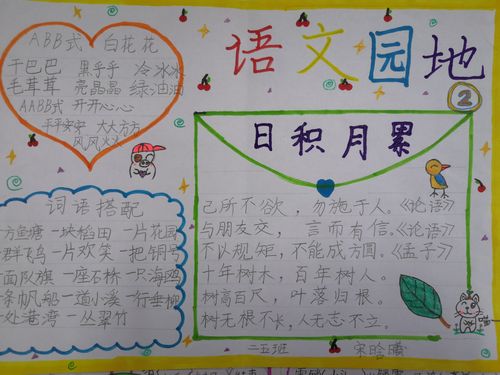 语文园地
2
ABB式 白花花
干巴巴 黑乎乎 冷冰冰
毛茸茸 亮晶晶 绿油油
AABB式 开开心心
平平安安 大大方方
风风火火
日积月累
己所不欲，勿施于人。《论语》
与朋友交，言而有信。《论语》
不以规矩，不能成方圆。《孟子》
十年树木，百年树人。
树高百尺，叶落归根。
树无根不长，人无志不立。
词语搭配
方鱼塘 一块稻田 一片花园
群飞鸟 一片欢笑 一把铜号
面队旗 一座石桥 一只海鸥
条帆船 一道小溪 一行垂柳
处港湾 一丛翠竹
二五班 宋晗